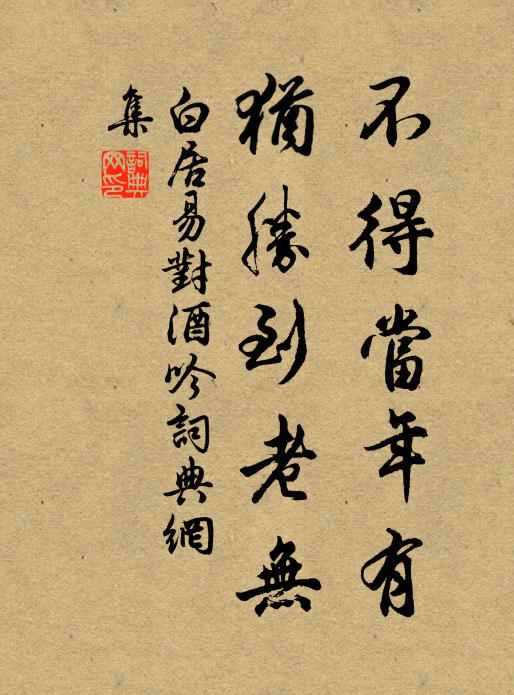 不得當年有
猶勝到老無
白居易對酒吟詞典網
集
詞典網印